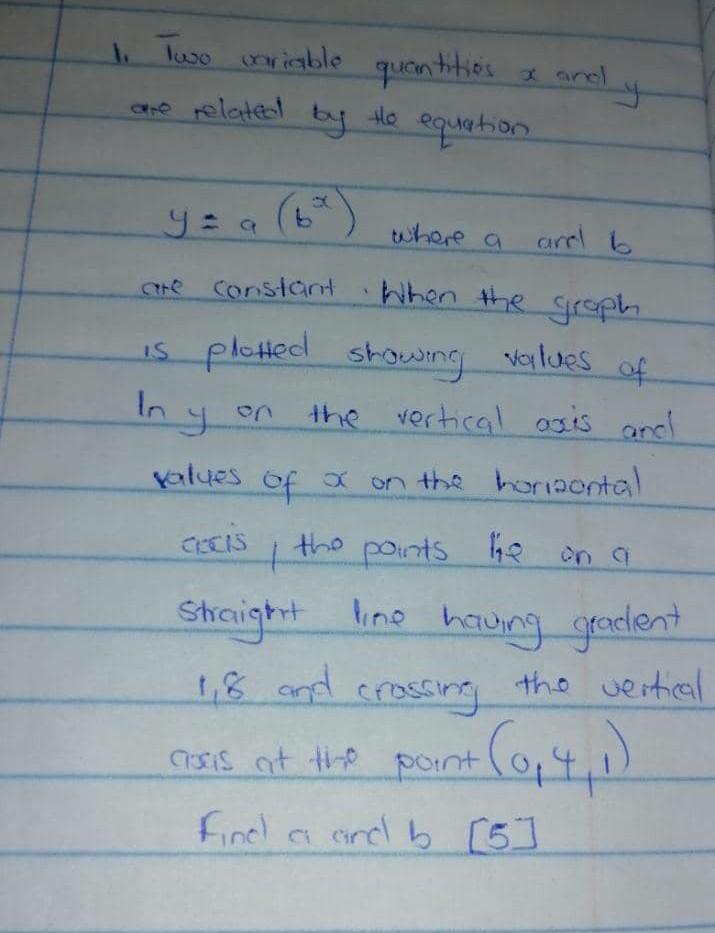 1. Two variable quantities x and y
are related by the equation
y = a (b^x) where a and b
are constant. When the graph
is plotted showing values of
ln y on the vertical axis and
values of x on the horizontal
axis, the points lie on a
straight line having gradient
1,8 and crossing the vertical
axis at the point (0,4,1)
Find a and b [5]